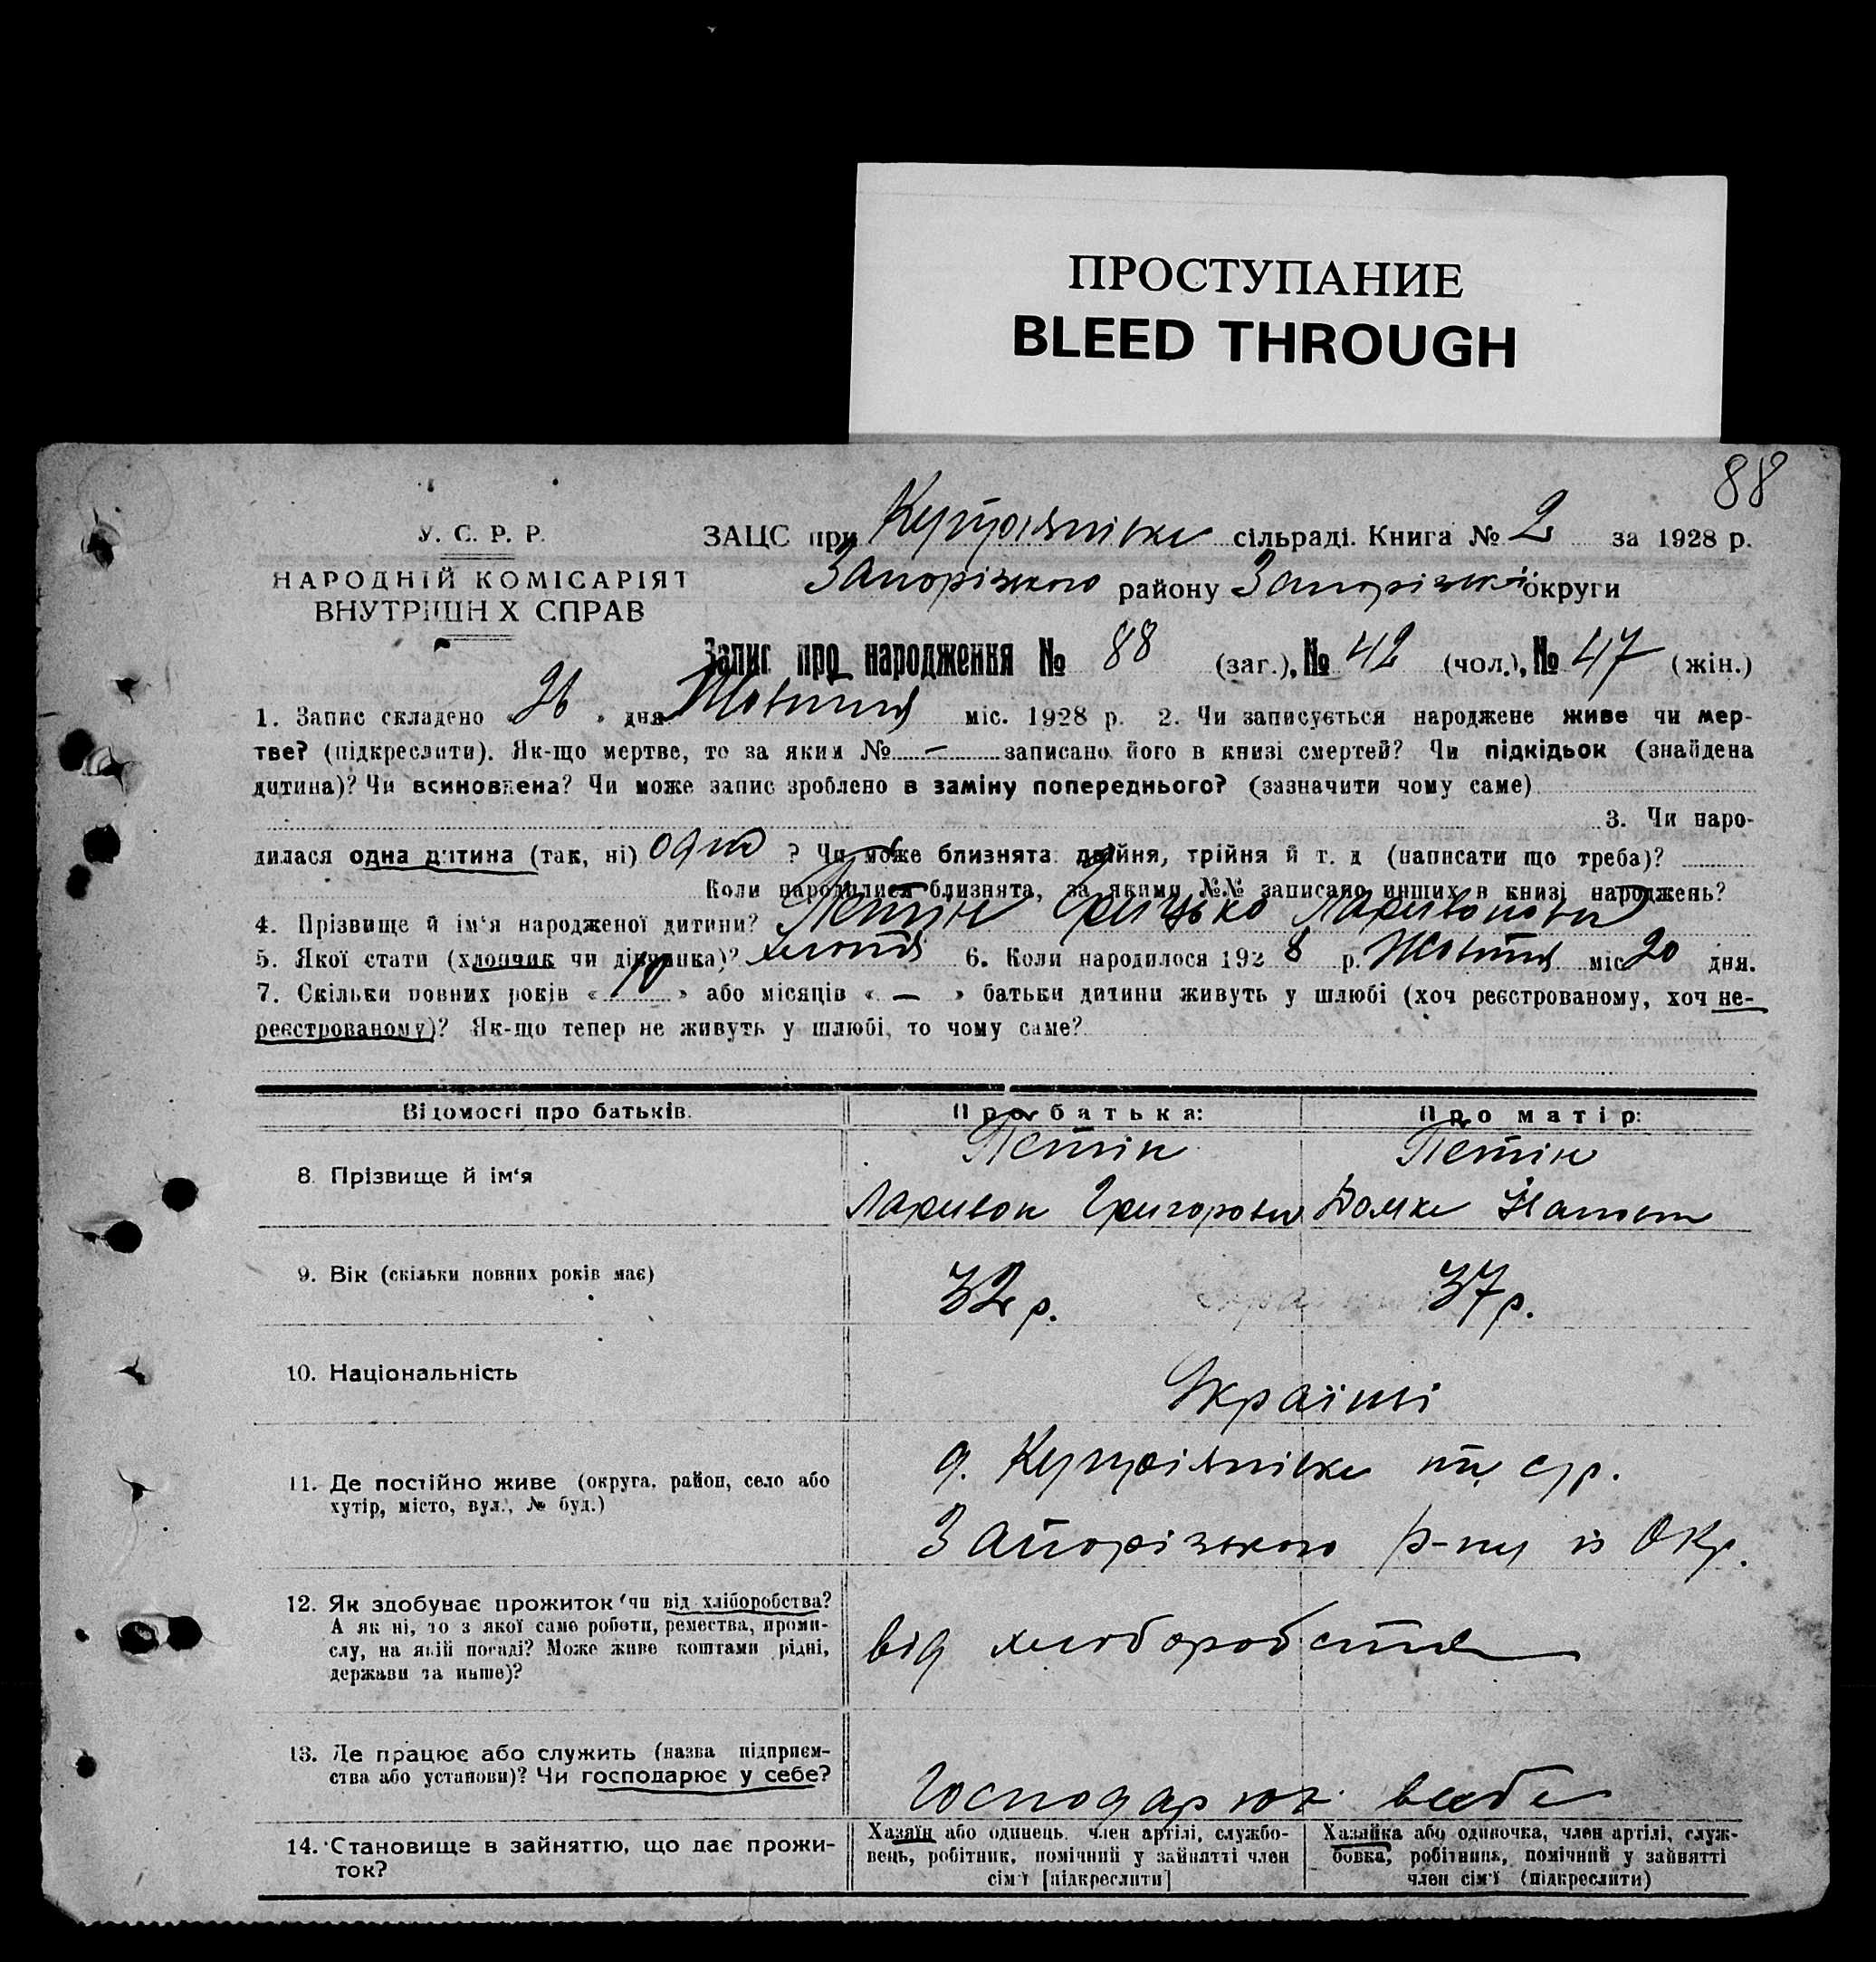 ПРОСТУПАНИЕ
BLEED THROUGH
88
У. С. Р. Р.
НАРОДНІЙ КОМІСАРІЯТ
ВНУТРІШН Х СПРАВ
ЗАЦС при Купріянівськ сільраді. Книга № 2 за 1928 р.
Запорізького району Запорізької округи
Запис про народження № 88 (заг.), № 42 (чол.), № 47 (жін.)
1. Запис складено « 26 » дня Жовтня міс. 1928 р. 2. Чи записується народжене живе чи мер-
тве? (підкреслити). Як-що мертве, то за яким № — записано його в книзі смертей? Чи підкідьок (знайдена
дитина)? Чи всиновлена? Чи може запис зроблено в заміну попереднього? (зазначити чому саме)
3. Чи наро-
дилася одна дитина (так, ні) одно ? Чи може близнята: двійня, трійня й т. д (написати що треба)?
Коли народилися близнята, за якими №№ записано инших в книзі народжень?
4. Прізвище й ім‘я народженої дитини? Петін Грицько Ларивонови
5. Якої стати (хлопчик чи дівчинка)? хлопця 6. Коли народилося 192 8 р. Жовтня міс 20 дня.
7. Скільки повних років « 10 » або місяців « — » батьки дитини живуть у шлюбі (хоч реєстрованому, хоч не-
реєстрованому)? Як-що тепер не живуть у шлюбі, то чому саме?
Відомості про батьків. Про батька: Про матір:
8. Прізвище й ім‘я Петін Петін
Ларивон Григорови Домка
9. Вік (скільки повних років має) 32 р. 37 р.
10. Національність Українці
11. Де постійно живе (округа, район, село або
хутір, місто, вул., № буд.)
Запорізького р-ну Окр.
12. Як здобуває прожиток (чи від хліборобства?
А як ні, то з якої саме роботи, ремества, проми-
слу, на якій посаді? Може живе коштами рідні,
держави та инше)?
від хліборобства
13. Де працює або служить (назва підприєм-
ства або установи)? Чи господарює у себе?
Господарюют в себе
14. Становище в зайняттю, що дає прожи-
ток?
Хазяїн або одинець, член артілі, службо-
вець, робітник, помічний у зайнятті член
сім‘ї [підкреслити]
Хазяйка або одиночка, член артілі, служ-
бовка, робітниця, помічний у зайнятті
член сім‘ї (підкреслити)